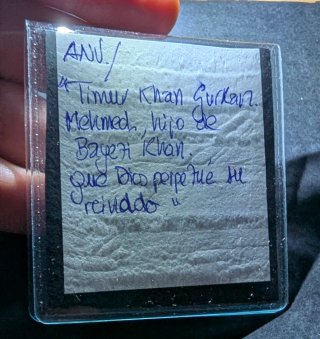 ANV./
"Timur Khan Gurkan.
Mehmed, hijo de
Bayezi Khan.
que Dios perpetue su
reinado"